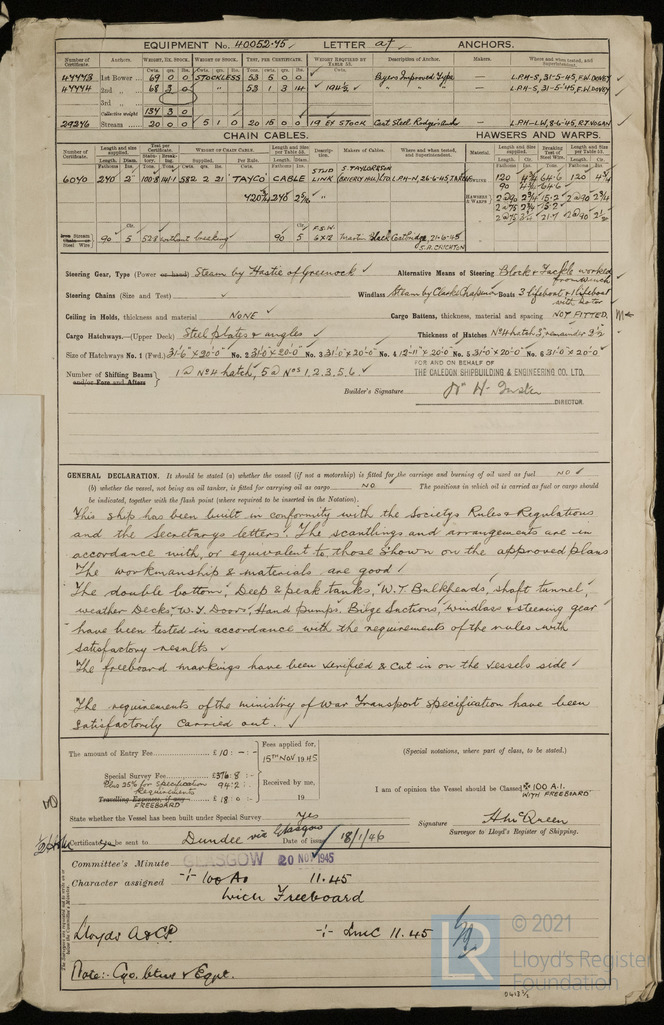 EQUIPMENT No. 40052.45 LETTER a† ANCHORS.
Number of Certificate. Anchors. WEIGHT, EX. STOCK. WEIGHT OF STOCK. TEST, PER CERTIFICATE. WEIGHT REQUIRED BY TABLE 53. Description of Anchor. Makers. Where and when tested, and Superintendent.
Cwts. qrs. lbs.
44443 1st Bower 69 0 0 STOCKLESS 53 5 0 0 Byers Improved Type L.P.H-S, 31-5-45, F.W. DOVEY
44444 2nd „ 68 3 0 „ 53 1 3 14 194½ L.P.H-S, 31-5-45, F.W. DOVEY
3rd „
Collective weight 137 3 0
29246 Stream 20 0 0 5 1 0 20 15 0 0 19 EX STOCK Cast Steel
CHAIN CABLES. HAWSERS AND WARPS.
Number of Certificate. Length and size supplied. Test per Certificate. WEIGHT OF CHAIN CABLE. Length and size per Table 53. Description. Makers of Cables. Where and when tested, and Superintendent. Material. Length and size supplied. Breaking Test of Steel Wire. Length and size per Table 53.
Fathoms Diam. Supplied. Per Rule. Fathoms Diam.
6040 240 2" 100·8 141·1 582 2 21 'TAYCO' CABLE STUD LINK S. TAYLOR & SON (BRIERLY HILL) LTD. L.P.H-N, 26-6-45
420¾ 240 2 5/16 „
HAWSERS & WARPS
Iron Stream Chain or Steel Wire 90 5 52·8 without breaking 90 5 F.S.W. 6x12 Martin Black Coatbridge, 21-6-45 S.A. CRICHTON
Steering Gear, Type (Power or hand) Steam by Hastie of Greenock Alternative Means of Steering Block & Tackle worked from winch
Steering Chains (Size and Test) Windlass Steam by Clarke Chapman Boats 3 lifeboat & 1 lifeboat with motor
Ceiling in Holds, thickness and material NONE Cargo Battens, thickness, material and spacing NOT FITTED.
Cargo Hatchways.—(Upper Deck) Steel plates & angles Thickness of Hatches No4 hatch 3", remainder 2½"
Size of Hatchways No. 1 (Fwd.) 31'-6" x 20'-0" No. 2 31'-0" x 20'-0" No. 3 31'-0" x 20'-0" No. 4 12'-11" x 20'-0" No. 5 31'-0" x 20'-0" No. 6 31'-0" x 20'-0"
FOR AND ON BEHALF OF
Number of Shifting Beams and/or Fore and Afters 1 @ No4 hatch, 5 @ Nos 1, 2, 3, 5, 6. THE CALEDON SHIPBUILDING & ENGINEERING CO. LTD.
Builder's Signature
DIRECTOR.
GENERAL DECLARATION. It should be stated (a) whether the vessel (if not a motorship) is fitted for the carriage and burning of oil used as fuel NO
(b) whether the vessel, not being an oil tanker, is fitted for carrying oil as cargo NO The positions in which oil is carried as fuel or cargo should
be indicated, together with the flash point (where required to be inserted in the Notation).
This ship has been built in conformity with the Societys Rules & Regulations
and the Secretarys letters. The scantlings and arrangements are in
accordance with, or equivalent to, those shown on the approved plans
The workmanship & materials are good
The double bottom, Deep & peak tanks, W.T. Bulkheads, shaft tunnel,
weather Decks, W.T. Doors, Hand Pumps, Bilge Suctions, windlass & steering gear
have been tested in accordance with the requirements of the rules with
satisfactory results
The freeboard markings have been verified & cut in on the vessels side
The requirements of the ministry of War Transport specification have been
satisfactorily carried out.
The amount of Entry Fee £ 10 : - : - Fees applied for, (Special notations, where part of class, to be stated.)
15TH NOV 1945
Special Survey Fee £376 : 8 : -
Plus 25% for specification Requirements 94 : 2 : - Received by me, I am of opinion the Vessel should be Classed ✠ 100 A.1. WITH FREEBOARD
Travelling Expenses, if any £ 18 : 0 : - 19
FREEBOARD
State whether the Vessel has been built under Special Survey Yes
Signature H McQueen
Surveyor to Lloyd's Register of Shipping.
Certificate to be sent to Dundee via Glasgow Date of issue 18/1/46
Committee's Minute GLASGOW 20 NOV 1945
Character assigned -|- 100 A1 11.45
with Freeboard
Lloyds A & CP -|- LMC 11.45
Note:- Eqpt.
© 2021
LR
Lloyd's Register
Foundation